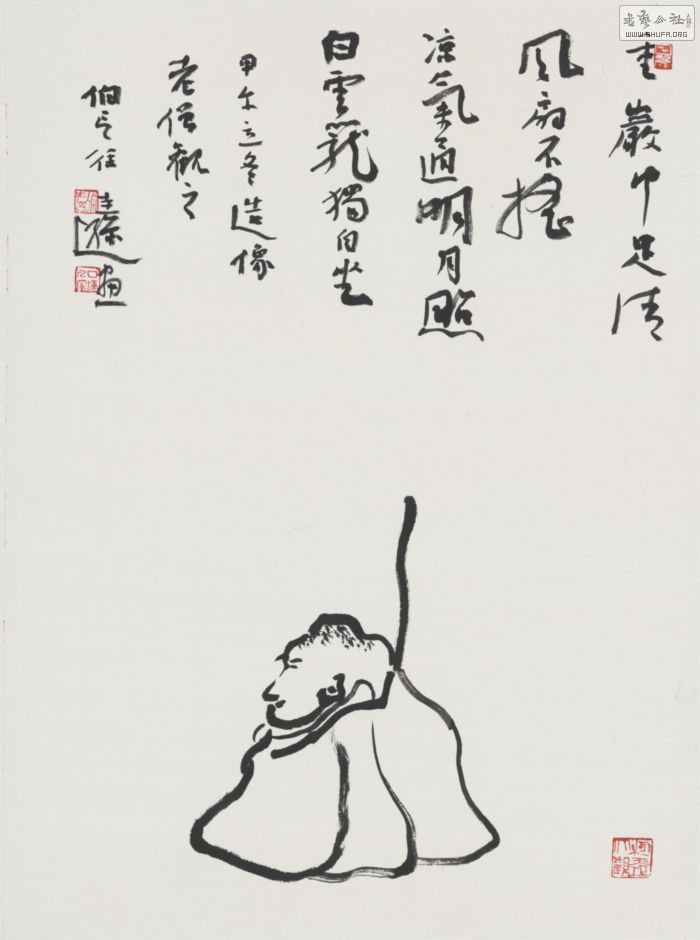 书艺公社
WWW.SHUFA.ORG
重巖中足清
風扇不搖
凉氣通明月照
白雲籠獨自坐
甲午立冬造像
老僧觀之
畫